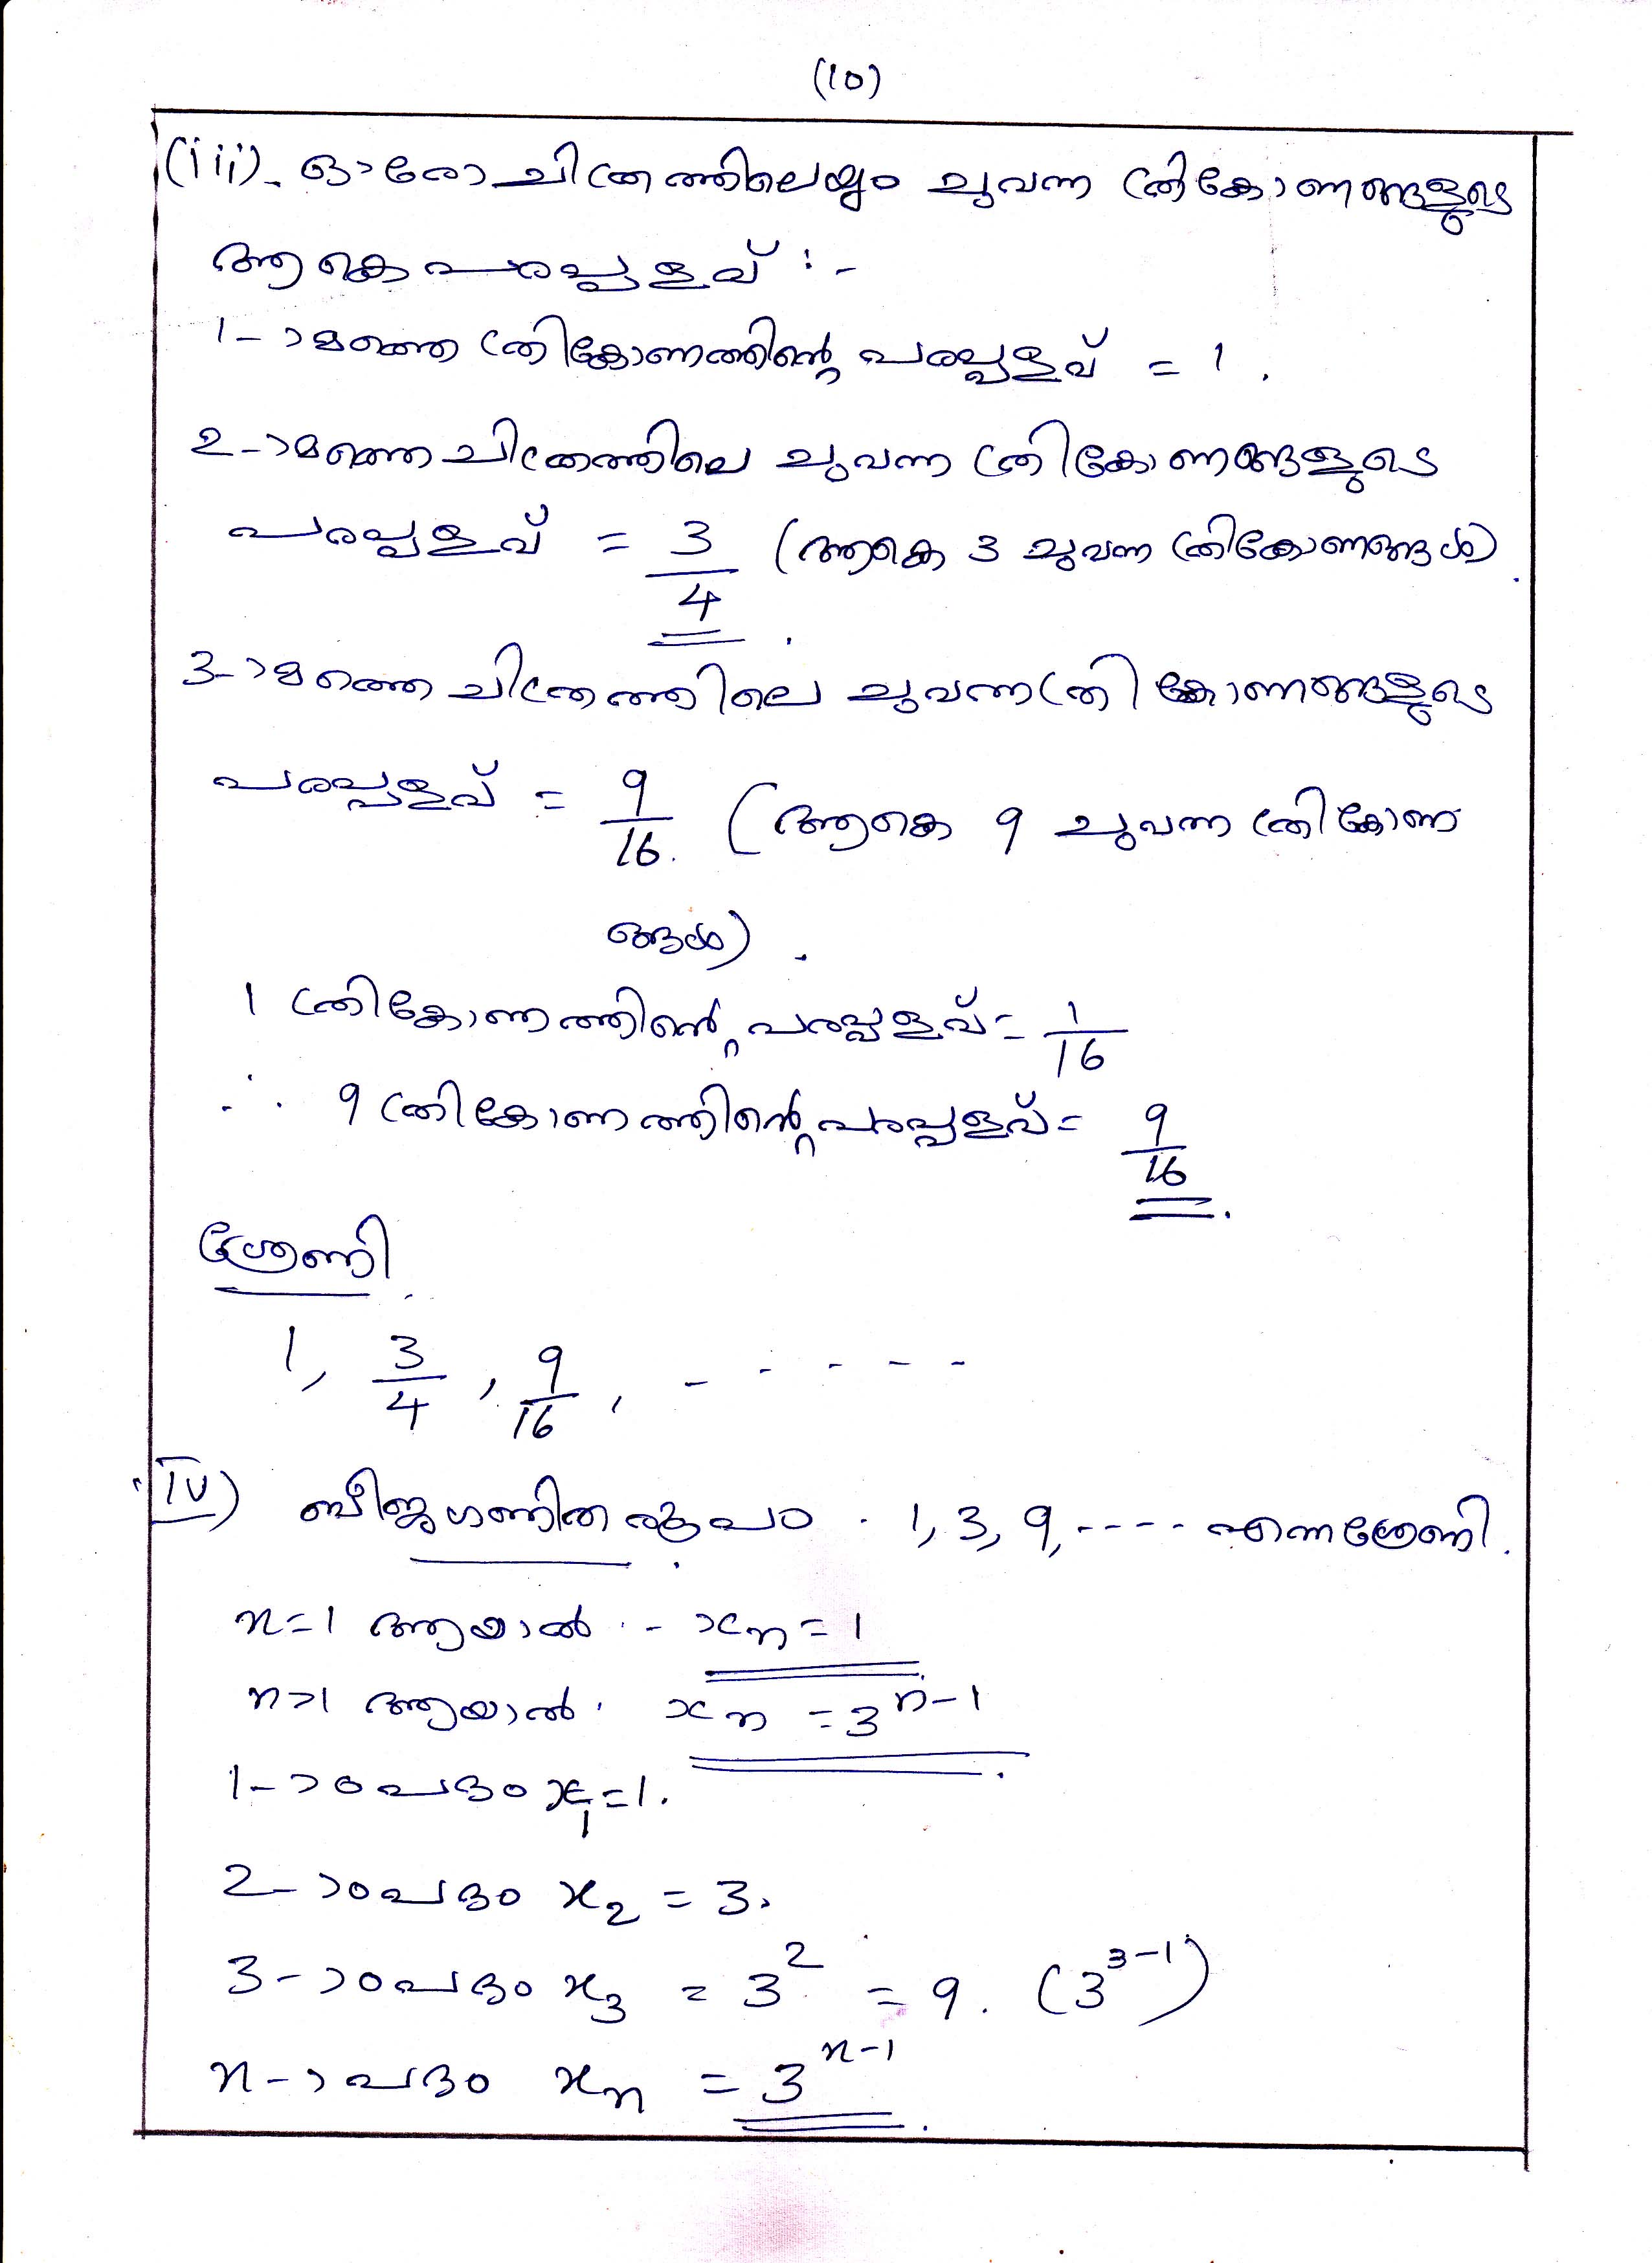 (10)
(iii). ഓരോ ചിത്രത്തിലെയും ചുവന്ന ത്രികോണങ്ങളുടെ
ആകെ പരപ്പളവ് :-
1-ാമത്തെ ത്രികോണത്തിന്റെ പരപ്പളവ് = 1.
2-ാമത്തെ ചിത്രത്തിലെ ചുവന്ന ത്രികോണങ്ങളുടെ
പരപ്പളവ് = 3/4 (ആകെ 3 ചുവന്ന ത്രികോണങ്ങൾ).
3-ാമത്തെ ചിത്രത്തിലെ ചുവന്ന ത്രികോണങ്ങളുടെ
പരപ്പളവ് = 9/16. (ആകെ 9 ചുവന്ന ത്രികോണ
ങ്ങൾ).
1 ത്രികോണത്തിന്റെ പരപ്പളവ് = 1/16
∴ 9 ത്രികോണത്തിന്റെ പരപ്പളവ് = 9/16.
ശ്രേണി
1, 3/4, 9/16, - - - - - -
IV) ബീജഗണിത രൂപം. 1, 3, 9, ---- എന്ന ശ്രേണി.
n=1 ആയാൽ - xn = 1
n>1 ആയാൽ xn = 3^(n-1).
1-ാം പദം x1 = 1.
2-ാം പദം x2 = 3.
3-ാം പദം x3 = 3^2 = 9. (3^(3-1))
n-ാ പദം xn = 3^(n-1).